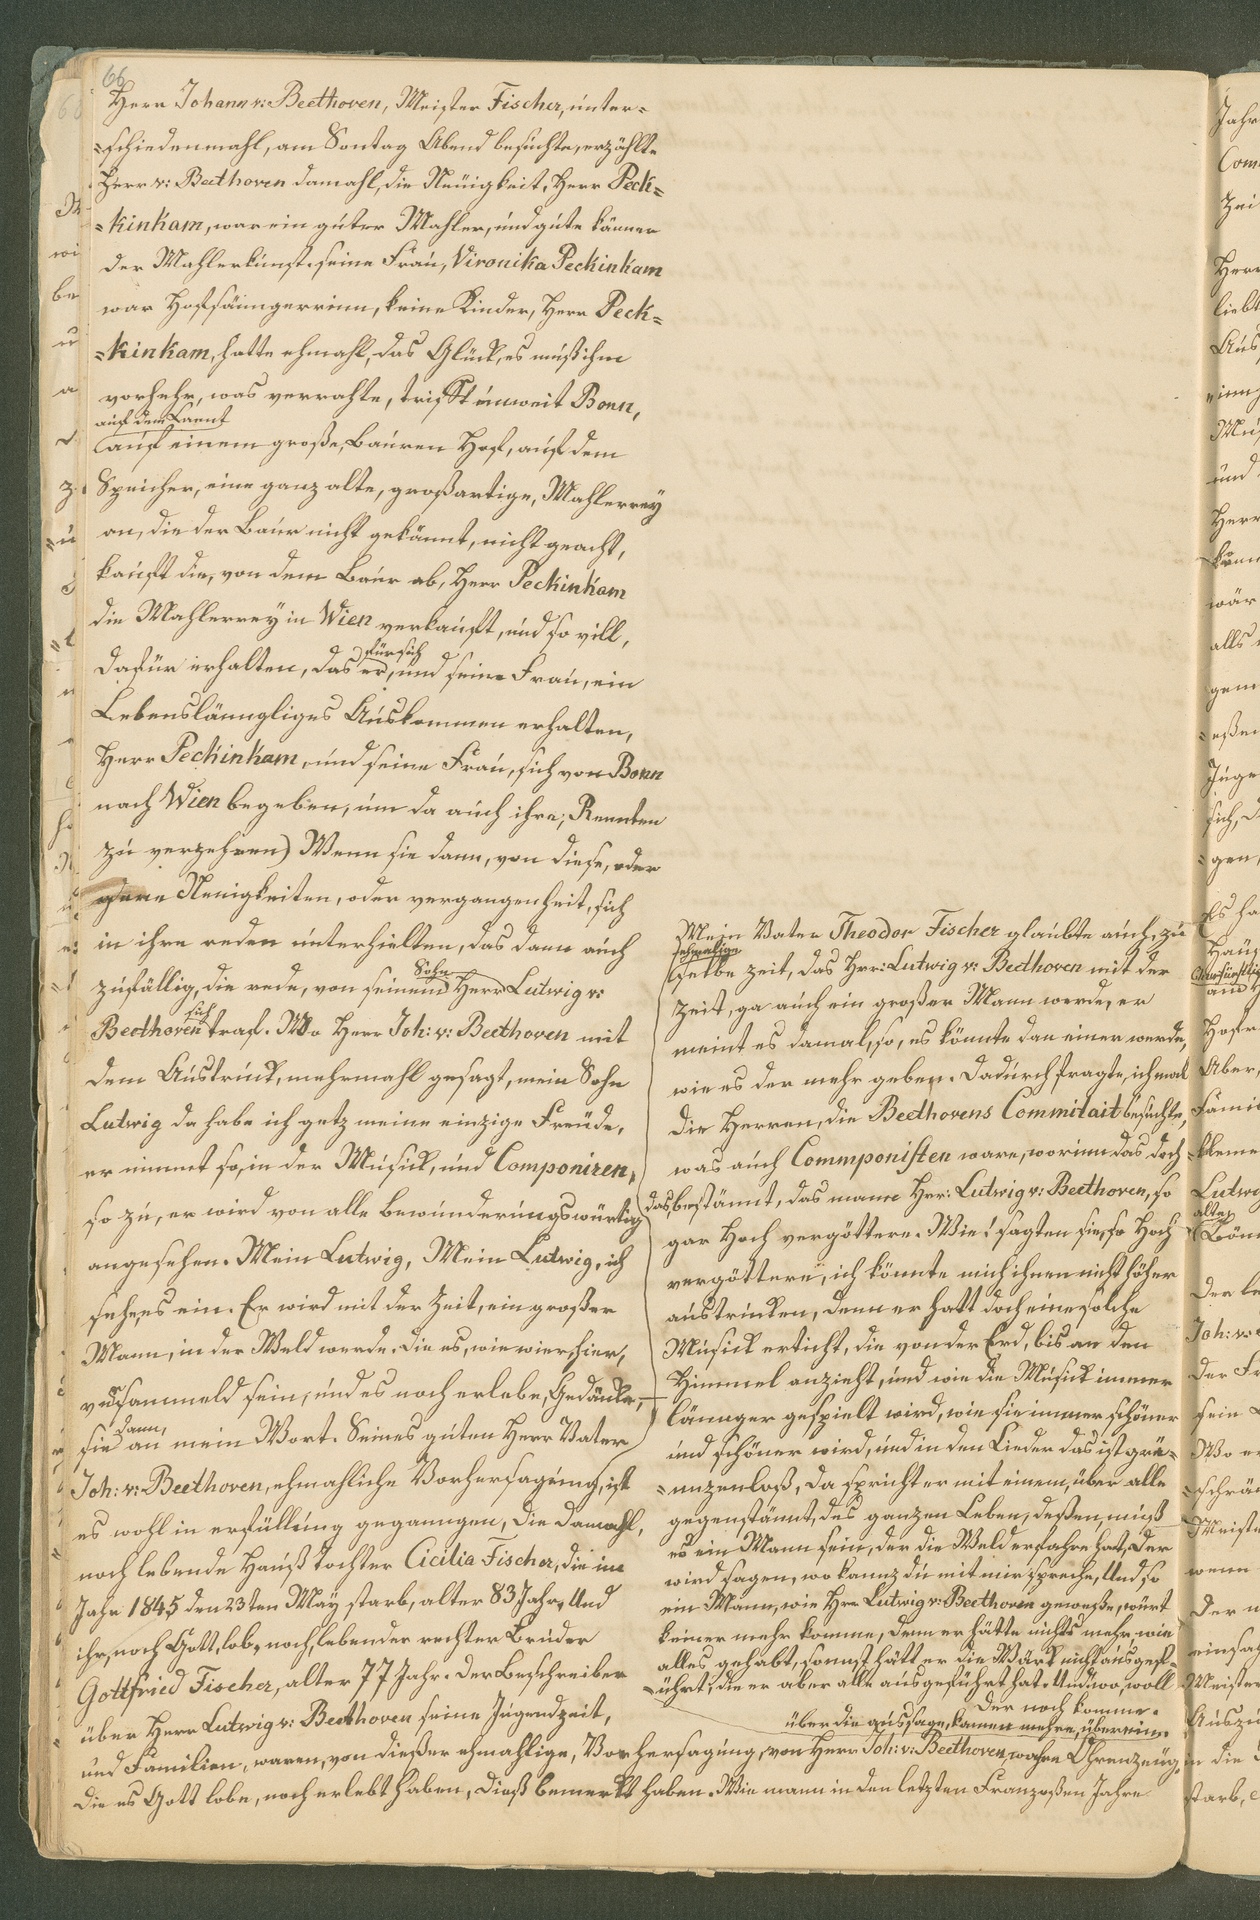 66
Herr Johann v: Beethoven, Meister Fischer, unter=
=schiedenmahl, am Sontag Abend besuchte, erzählte
Herr v: Beethoven damahl, die Neuigkeit, Herr Peck=
=kinkam, war ein guter Mahler, und gute känner
der Mahlerkunst. seine Frau, Vironika Peckinkam
war Hofsänngerrinn, keine Kinder, Herr Peck=
=kinkam, hatte ehmahl, das Glück, es muß ihm
vorhehr, was verrahte, trifft unweit Bonn,
auf dem Lannt
auf einem große, Bauren Hof, auf dem
Speicher, eine ganz alte, großartige, Mahlerrey
an, die der Baur nicht gekännt, nicht geacht,
kauft die, von dem Baur ab, Herr Peckinkam
die Mahlerrey in Wien verkauft, und so vill,
für sich
dafür erhalten, das er, und seine Frau, ein
Lebenslänngliges Auskommen erhalten,
Herr Peckinkam, und seine Frau, sich von Bonn
nach Wien begeben, um da auch ihre, Rennten
zu verzehren) Wenn sie dann, von diese, oder
Neuigkeiten, oder vergangenheit, sich
in ihre reden unterhielten, das dann auch
Sohn
zufällig, die rede, von seinem Herr Lutwig v:
sich
Beethoven traf. Wo Herr Joh: v: Beethoven mit
dem Austruck, mehrmahl gesagt, mein Sohn
Lutwig da habe ich getz meine einzige Freude,
er nimmt so, in der Musick, und Componiren,
so zu, er wird von alle bewunderungswürtig
angesehen. Mein Lutwig, Mein Lutwig, ich
sehe, es ein. Er wird mit der Zeit, ein großer
Mann, in der Weld werde. die es, wie wier, hier,
versammeld sein, und es noch erlebe, Gedänke,
dann,
sie an mein Wort. Seines guten Herr Vater
Joh: v: Beethoven, ehmahliche Vorhersagung, ist
es wohl in erfüllung gegangen, die damahl,
noch lebende Hauß tochter Cicilia Fischer, die im
Jahr 1845 den 23ten May starb, alter 83 Jahr, Und
ihr, noch Gott, lob, noch, lebender rechter Bruder
Gottfried Fischer, alter 77 Jahr. der Beschreiber
über Herr Lutwig v: Beethoven seine Jugendzeit,
und Familien, waren, von dießer ehmahlige, Vorhersagung, von Herr Joh: v: Beethoven, wahre Ohrenzeug,
die es Gott lobe, noch erlebt haben, dieß bemerkt haben. Wie mann in den letzten Franzoßen Jahre
Mein Vater Theodor Fischer glaubte auch, zu
ehmalige
selbe zeit, das Hrr: Lutwig v: Beethoven mit der
Zeit, ga auch ein großer Mann werde, er
meint es damal, so, es könnte dan einer werde,
wie es der mehr geben. Dadurch fragte, ich mal
die Herren, die Beethovens Commitait besuchte,
was auch Commponisten ware, worinn das doch
das, bestännt, das mann Hrr: Lutwig v: Beethoven, so
gar Hoch vergöttere. Wie! sagten sie, so Hoch
vergöttere, ich könnte mich ihnen nicht höher
austrücken, denn er hatt doch eine solche
Musick erticht, die von der Erd, bis an den
Himmel anzieht, und wie die Musick immer
länger gespielt wird, wie sie immer schöner
und schöner wird, und in den Lieder das ist grä=
=nnzenloß, da spricht er mit einem, über alle
gegenstännt, des ganzen Leben, deßen, muß
es ein Mann sein, der die Weld erfahre hat, der
wird sagen, wo kannz du mit mir spreche, Und so
ein Mann, wie Hrr Lutwig v: Beethoven geweße, würt
keiner mehr komme, denn er hätte nichts mehr, wie
alles gehabt, sonnst hätt er die Wärk nicht ausgef=
=ührt, die er aber alle ausgeführt hat. Und wo, woll
der noch komme.
über die aussage, kamen mehre, überein.